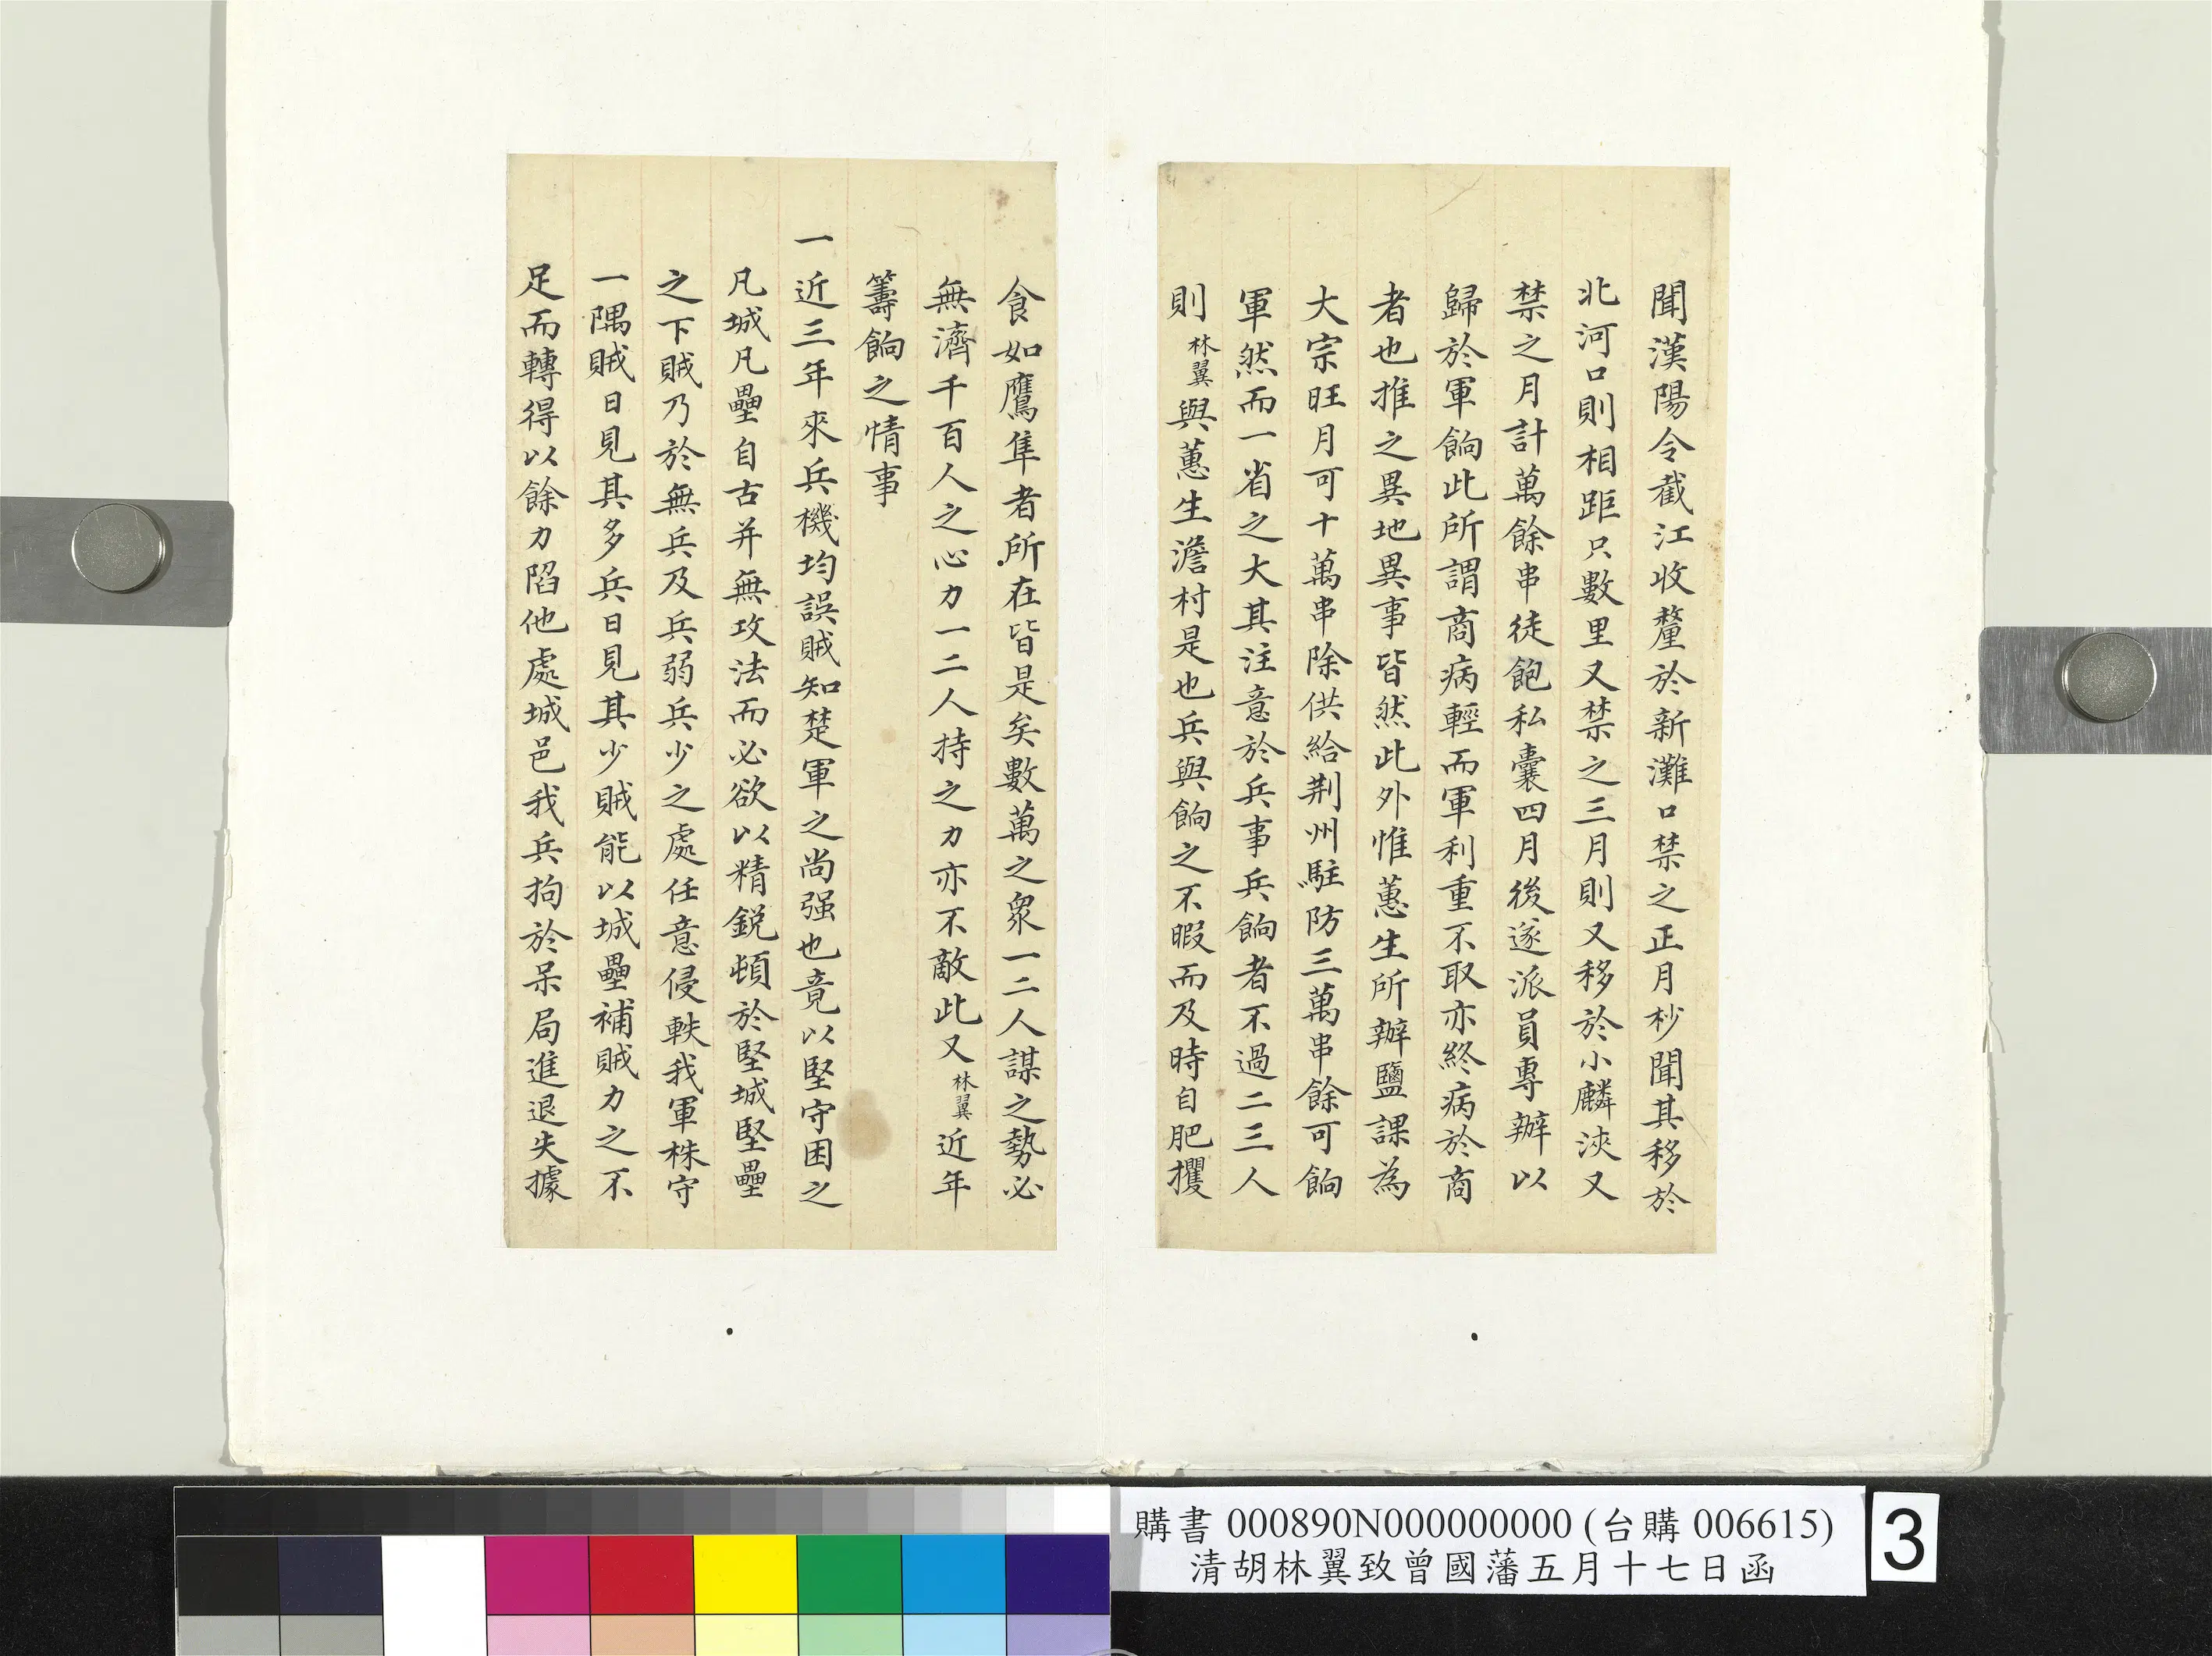 聞漢陽令截江收釐於新灘口禁之正月杪聞其移於
北河口則相距只數里又禁之三月則又移於小麟浹又
禁之月計萬餘串徒飽私囊四月後遂派員專辦以
歸於軍餉此所謂商病輕而軍利重不取亦終病於商
者也推之異地異事皆然此外惟蕙生所辦鹽課為
大宗旺月可十萬串除供給荆州駐防三萬串餘可餉
軍然而一省之大其注意於兵事兵餉者不過二三人
則林翼與蕙生澹村是也兵與餉之不暇而及時自肥攫
食如鷹隼者所在皆是矣數萬之衆一二人謀之勢必
無濟千百人之心力一二人持之力亦不敵此又林翼近年
籌餉之情事
一近三年來兵機均誤賊知楚軍之尚强也竟以堅守困之
凡城凡壘自古并無攻法而必欲以精鋭頓於堅城堅壘
之下賊乃於無兵及兵弱兵少之處任意侵軼我軍株守
一隅賊日見其多兵日見其少賊能以城壘補賊力之不
足而轉得以餘力陷他處城邑我兵拘於呆局進退失據
購書 000890N000000000 (台購 006615)
清胡林翼致曾國藩五月十七日函
3